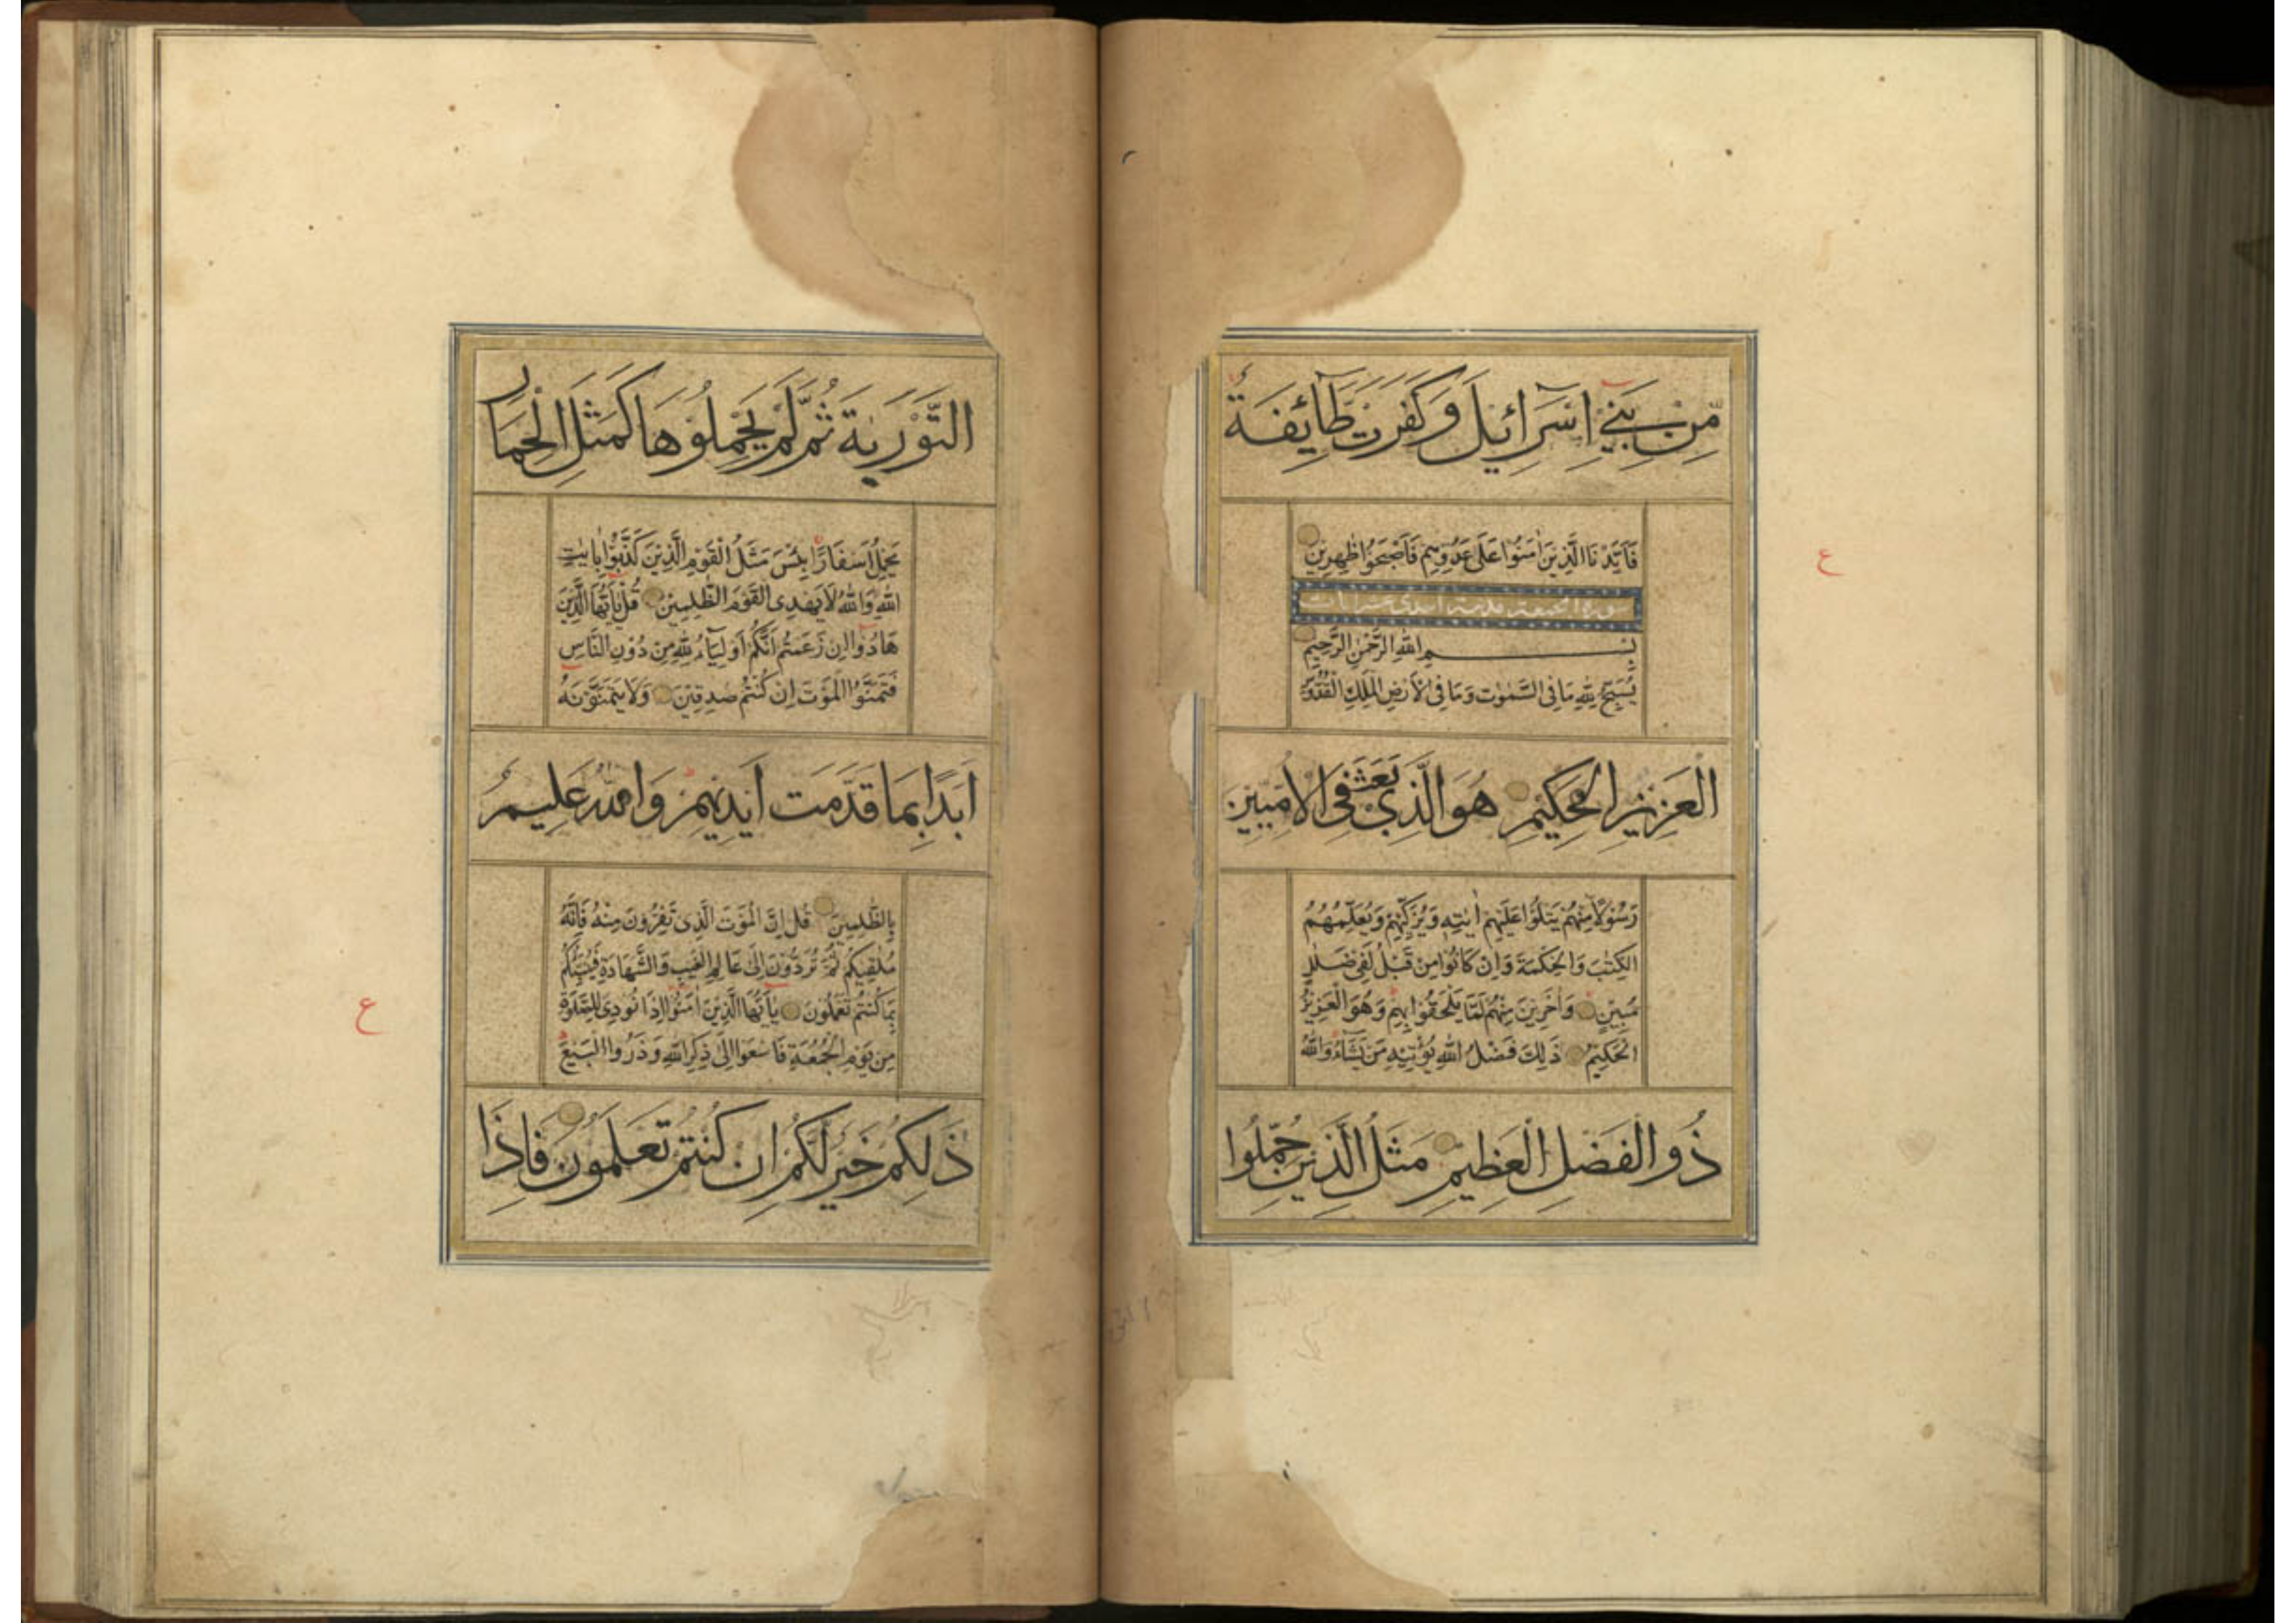 مِّنْ بَنِيٓ اِسْرَآئِيْلَ وَكَفَرَتْ طَّآئِفَةٌ
فَاَيَّدْنَا الَّذِيْنَ اٰمَنُوْا عَلٰى عَدُوِّهِمْ فَاَصْبَحُوْا ظٰهِرِيْنَ
سورة الجمعة مدنية احدى عشر ايات
بِسْمِ اللّٰهِ الرَّحْمٰنِ الرَّحِيْمِ
يُسَبِّحُ لِلّٰهِ مَا فِى السَّمٰوٰتِ وَمَا فِى الْاَرْضِ الْمَلِكِ الْقُدُّوْسِ
الْعَزِيْزِ الْحَكِيْمِ هُوَ الَّذِيْ بَعَثَ فِى الْاُمِّيّٖيْنَ
رَسُوْلًا مِّنْهُمْ يَتْلُوْا عَلَيْهِمْ اٰيٰتِهٖ وَيُزَكِّيْهِمْ وَيُعَلِّمُهُمُ
الْكِتٰبَ وَالْحِكْمَةَ وَاِنْ كَانُوْا مِنْ قَبْلُ لَفِىْ ضَلٰلٍ
مُّبِيْنٍ وَّاٰخَرِيْنَ مِنْهُمْ لَمَّا يَلْحَقُوْا بِهِمْ وَهُوَ الْعَزِيْزُ
الْحَكِيْمُ ذٰلِكَ فَضْلُ اللّٰهِ يُؤْتِيْهِ مَنْ يَّشَآءُ وَاللّٰهُ
ذُو الْفَضْلِ الْعَظِيْمِ مَثَلُ الَّذِيْنَ حُمِّلُوا
ع
التَّوْرٰىةَ ثُمَّ لَمْ يَحْمِلُوْهَا كَمَثَلِ الْحِمَارِ
يَحْمِلُ اَسْفَارًا بِئْسَ مَثَلُ الْقَوْمِ الَّذِيْنَ كَذَّبُوْا بِاٰيٰتِ
اللّٰهِ وَاللّٰهُ لَا يَهْدِى الْقَوْمَ الظّٰلِمِيْنَ قُلْ يٰٓاَيُّهَا الَّذِيْنَ
هَادُوْٓا اِنْ زَعَمْتُمْ اَنَّكُمْ اَوْلِيَآءُ لِلّٰهِ مِنْ دُوْنِ النَّاسِ
فَتَمَنَّوُا الْمَوْتَ اِنْ كُنْتُمْ صٰدِقِيْنَ وَلَا يَتَمَنَّوْنَهٗٓ
اَبَدًا بِمَا قَدَّمَتْ اَيْدِيْهِمْ وَاللّٰهُ عَلِيْمٌ
بِالظّٰلِمِيْنَ قُلْ اِنَّ الْمَوْتَ الَّذِىْ تَفِرُّوْنَ مِنْهُ فَاِنَّهٗ
مُلٰقِيْكُمْ ثُمَّ تُرَدُّوْنَ اِلٰى عَالِمِ الْغَيْبِ وَالشَّهَادَةِ فَيُنَبِّئُكُمْ
بِمَا كُنْتُمْ تَعْمَلُوْنَ يٰٓاَيُّهَا الَّذِيْنَ اٰمَنُوْٓا اِذَا نُوْدِىَ لِلصَّلٰوةِ
مِنْ يَّوْمِ الْجُمُعَةِ فَاسْعَوْا اِلٰى ذِكْرِ اللّٰهِ وَذَرُوا الْبَيْعَ
ذٰلِكُمْ خَيْرٌ لَّكُمْ اِنْ كُنْتُمْ تَعْلَمُوْنَ فَاِذَا
ع